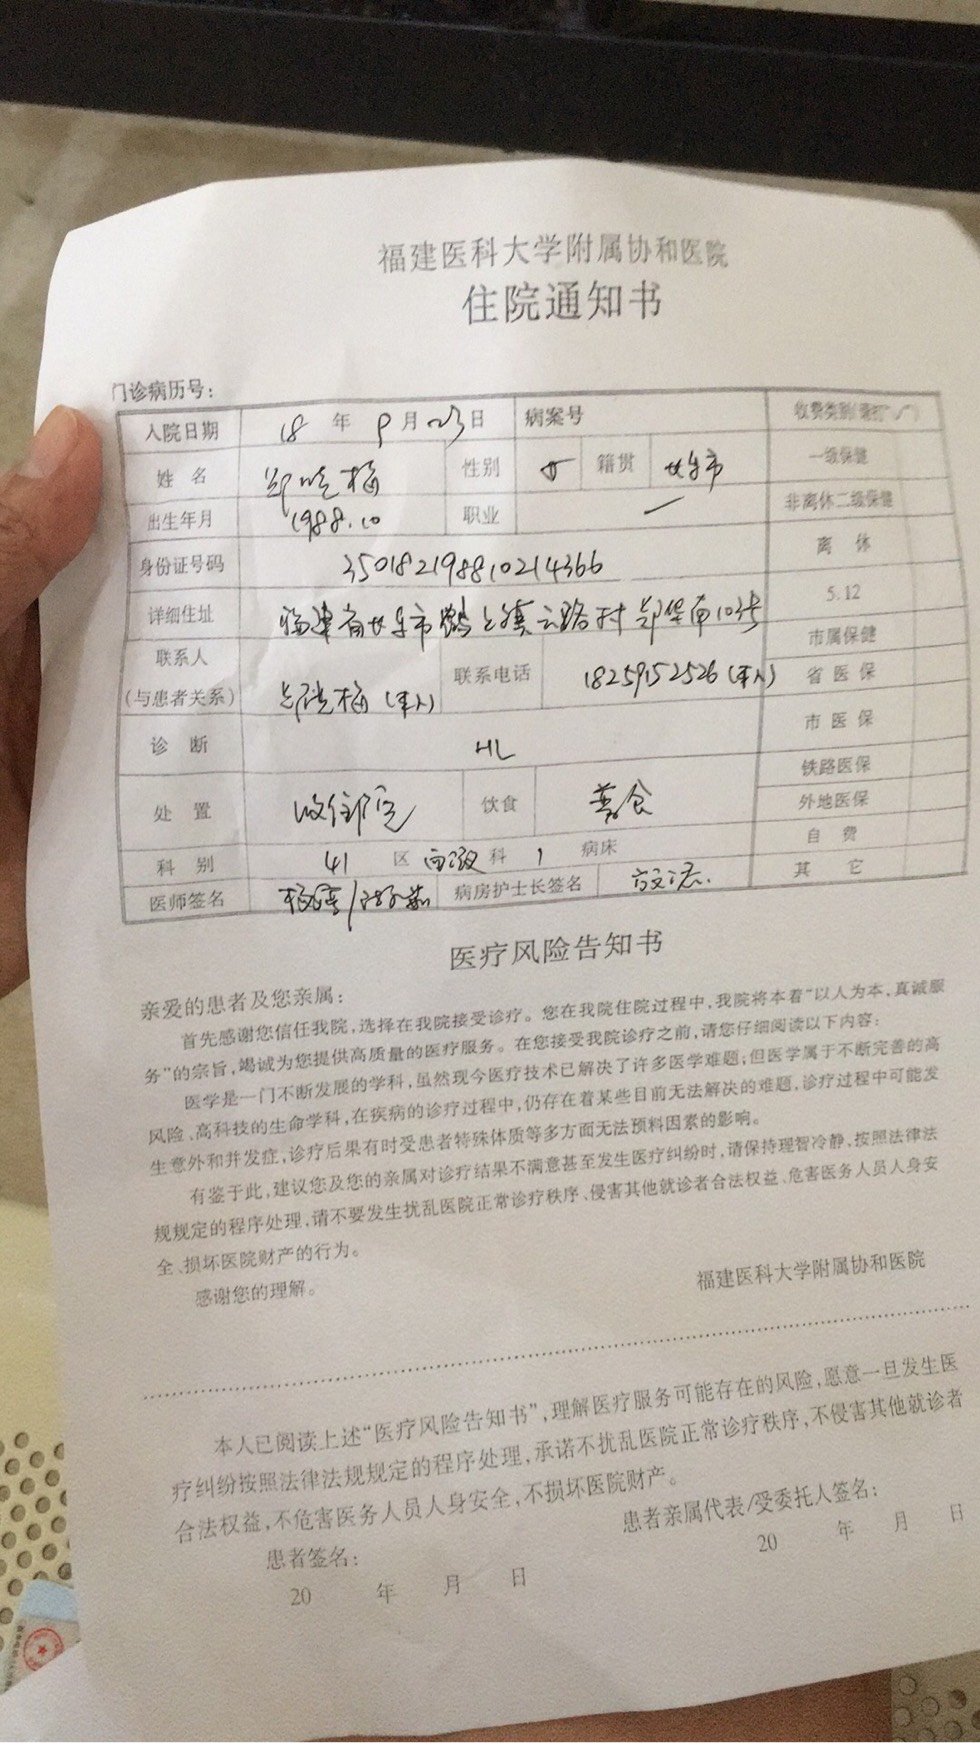 福建医科大学附属协和医院
住院通知书
门诊病历号：
入院日期 18 年 9 月 23 日 病案号 收费类别
姓名 性别 女 籍贯 长乐市 一级保健
出生年月 1988.10 职业 — 非离休二级保健
身份证号码 350182198810214366 离休
详细住址 福建省长乐市鹤上镇云路村郑华南103号 5.12
市属保健
联系人
(与患者关系) (本人) 联系电话 18259152526(本人) 省医保
诊断 HL 市医保
铁路医保
处置 收住院 饮食 普食 外地医保
自费
科别 41 区 血液 科 1 病床
其它
医师签名 病房护士长签名
医疗风险告知书
亲爱的患者及您亲属：
首先感谢您信任我院，选择在我院接受诊疗。您在我院住院过程中，我院将本着“以人为本，真诚服
务”的宗旨，竭诚为您提供高质量的医疗服务。在您接受我院诊疗之前，请您仔细阅读以下内容：
医学是一门不断发展的学科，虽然现今医疗技术已解决了许多医学难题；但医学属于不断完善的高
风险、高科技的生命学科，在疾病的诊疗过程中，仍存在着某些目前无法解决的难题，诊疗过程中可能发
生意外和并发症，诊疗后果有时受患者特殊体质等多方面无法预料因素的影响。
有鉴于此，建议您及您的亲属对诊疗结果不满意甚至发生医疗纠纷时，请保持理智冷静，按照法律法
规规定的程序处理，请不要发生扰乱医院正常诊疗秩序、侵害其他就诊者合法权益、危害医务人员人身安
全、损坏医院财产的行为。
感谢您的理解。
福建医科大学附属协和医院
本人已阅读上述“医疗风险告知书”，理解医疗服务可能存在的风险，愿意一旦发生医
疗纠纷按照法律法规规定的程序处理，承诺不扰乱医院正常诊疗秩序，不侵害其他就诊者
合法权益，不危害医务人员人身安全，不损坏医院财产。
患者签名： 患者亲属代表/受委托人签名：
20 年 月 日 20 年 月 日